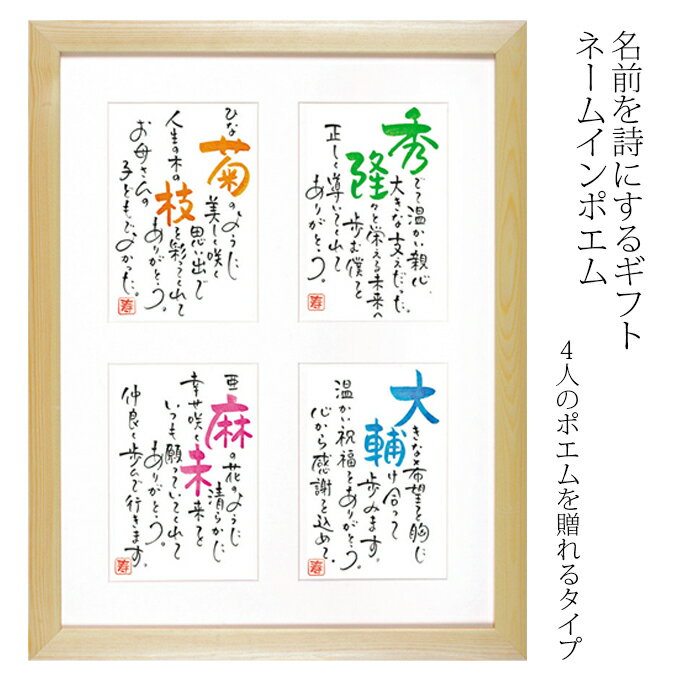 名前を詩にするギフト
ネームインポエム
4人のポエムを贈れるタイプ
秀でて温かい親心、
大きな支えだった。
隆々と栄える未来へ
歩む僕を
正しく導いてくれて
ありがとう。
寿
ひな菊のように
美しく咲く
思い出で
人生の木の枝を彩ってくれて
ありがとう。
お母さんの
子どもで、よかった。
寿
大きな希望を胸に
輔け合って
歩みます。
温かい祝福をありがとう。
心から感謝を込めて。
寿
亜麻の花のように
清らかに
幸せ咲く未来を
いつも願っていてくれて
ありがとう。
仲良く歩んで行きます。
寿